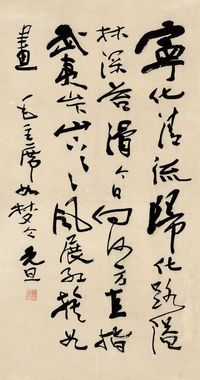 寧化清流歸化路隘
林深苔滑今日向何方直指
武夷山下山下山下風展红旗如
畫 毛主席如梦令元旦